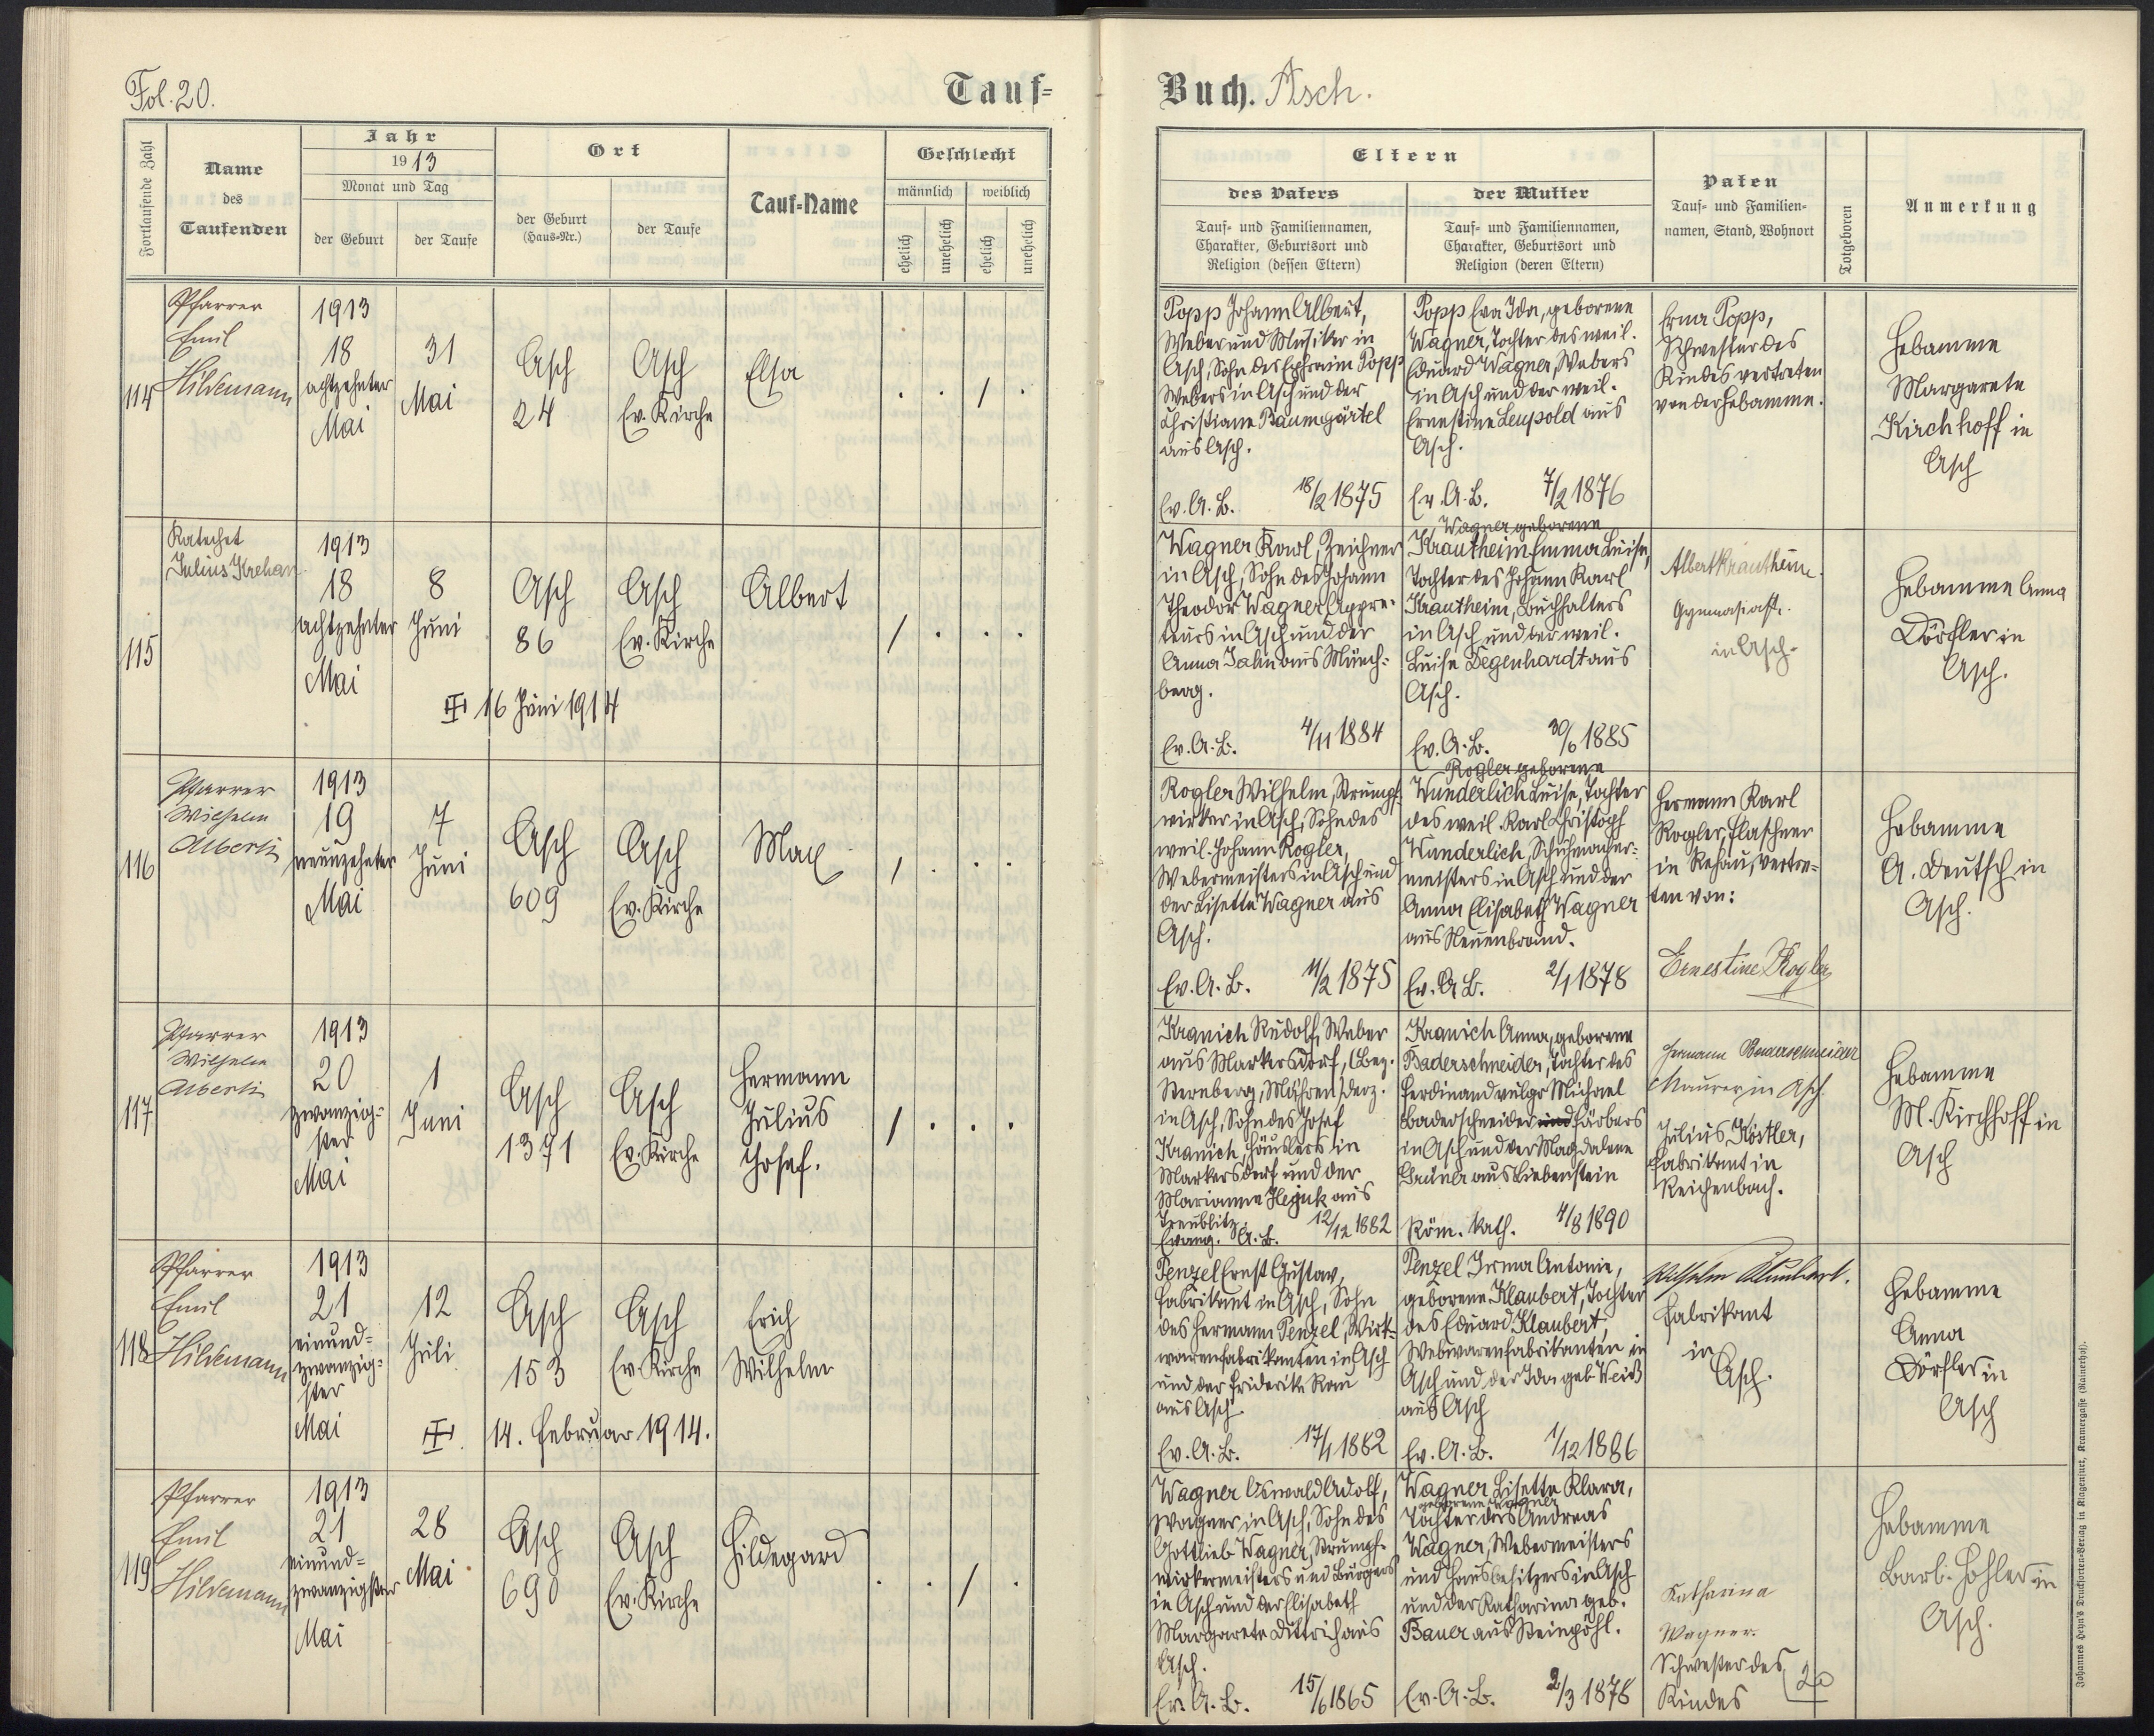 Fol. 20.
Tauf-
Buch. Asch.
Fortlaufende Zahl
Name
des
Taufenden
Jahr
1913
Monat und Tag
der Geburt
der Taufe
Ort
der Geburt
(Haus-Nr.)
der Taufe
Tauf-Name
Geschlecht
männlich
weiblich
ehelich
unehelich
ehelich
unehelich
Eltern
des Vaters
Tauf- und Familiennamen,
Charakter, Geburtsort und
Religion (dessen Eltern)
der Mutter
Tauf- und Familiennamen,
Charakter, Geburtsort und
Religion (deren Eltern)
Paten
Tauf- und Familien-
namen, Stand, Wohnort
Totgeboren
Anmerkung
114
Pfarrer
Emil
Hildemann
1913
18
achtzehnter
Mai
31
Mai
Asch
24
Asch
Ev. Kirche
Elsa
Popp Johann Albert,
Weber und Musiker in
Asch, Sohn des Ephraim Popp
Webers in Asch und der
Christiane Baumgärtel
aus Asch.
Ev. A. B. 18/2 1875
Popp Eva Ida, geborene
Wagner, Tochter des weil.
Eduard Wagner, Webers
in Asch und der weil.
Ernestine Leupold aus
Asch.
Ev. A. B. 7/2 1876
Erna Popp,
Schwester des
Kindes vertreten
von der Hebamme.
Hebamme
Margarete
Kirchhoff in
Asch
115
Katechet
Julius Krehan
1913
18
achtzehnter
Mai
8
Juni
Asch
86
Asch
Ev. Kirche
Albert
16 Juni 1914
Wagner Karl, Zeichner
in Asch, Sohn des Johann
Theodor Wagner, Appre-
teurs in Asch und der
Anna Jahn aus Münch-
berg.
Ev. A. B. 4/11 1884
Wagner geborene
Krautheim Emma Luise,
Tochter des Johann Karl
Krautheim, Buchhalters
in Asch und der weil.
Luise Degenhardt aus
Asch.
Ev. A. B. 30/6 1885
Albert Krautheim
Gymnasiast
in Asch.
Hebamme Anna
Dörfler in
Asch.
116
Pfarrer
Wilhelm
Alberti
1913
19
neunzehnter
Mai
7
Juni
Asch
609
Asch
Ev. Kirche
Max
Rogler Wilhelm, Strumpf-
wirker in Asch, Sohn des
weil. Johann Rogler,
Webermeisters in Asch und
der Lisette Wagner aus
Asch.
Ev. A. B. 11/2 1875
Rogler geborene
Wunderlich Luise, Tochter
des weil. Karl Christoph
Wunderlich, Schuhmacher-
meisters in Asch und der
Anna Elisabeth Wagner
aus Neuenbrand.
Ev. A. B. 2/1 1878
Hermann Karl
Rogler, Flaschner
in Rehau, vertre-
ten von:
Ernestine Rogler
Hebamme
A. Deutsch in
Asch.
117
Pfarrer
Wilhelm
Alberti
1913
20
zwanzig-
ster
Mai
1
Juni
Asch
1371
Asch
Ev. Kirche
Hermann
Julius
Josef.
Kranich Rudolf, Weber
aus Markersdorf, (Bez.
Sternberg, Mähren) derz.
in Asch, Sohn des Josef
Kranich, Häuslers in
Markersdorf und der
Marianne aus
Treublitz.
Evang. A. B. 12/12 1882
Kranich Anna, geborene
Baderschneider, Tochter des
Ferdinand vulgo Michael
Baderschneider und Färbers
in Asch und der Magdalene
aus Liebenstein
Röm. kath. 4/8 1890
Hermann Baderschneider
Maurer in Asch.
Julius Köstler,
Fabrikant in
Reichenbach.
Hebamme
M. Kirchhoff in
Asch
118
Pfarrer
Emil
Hildemann
1913
21
einund-
zwanzig-
ster
Mai
12
Juli
Asch
153
Asch
Ev. Kirche
Erich
Wilhelm
14. Februar 1914.
Penzel Ernst Gustav,
Fabrikant in Asch, Sohn
des Hermann Penzel, Wirk-
warenfabrikanten in Asch
und der Friderike Rau
aus Asch.
Ev. A. B. 17/1 1882
Penzel Irma Antonie,
geborene Klaubert, Tochter
des Eduard Klaubert,
Webwarenfabrikanten in
Asch und der Ida geb. Weiß
aus Asch
Ev. A. B. 1/12 1886
Wilhelm Klaubert.
Fabrikant
in
Asch.
Hebamme
Anna
Dörfler in
Asch
119
Pfarrer
Emil
Hildemann
1913
21
einund-
zwanzigster
Mai
28
Mai
Asch
690
Asch
Ev. Kirche
Hildegard
Wagner Oswald Adolf,
Wagner in Asch, Sohn des
Gottlieb Wagner, Strumpf-
wirkermeisters und Bürgers
in Asch und der Elisabeth
Margareta Dittrich aus
Asch.
Ev. A. B. 15/6 1865
Wagner Lisette Klara,
geborene Wagner
Tochter des Andreas
Wagner, Webermeisters
und Hausbesitzers in Asch
und der Katharina geb.
Bauer aus Steinpöhl.
Ev. A. B. 2/3 1878
Katharina
Wagner.
Schwester des
Kindes
20
Hebamme
Barb. Hohler in
Asch.
Johannes Heyn's Drucksorten-Verlag in Klagenfurt, Kramergasse (Rainerhof).